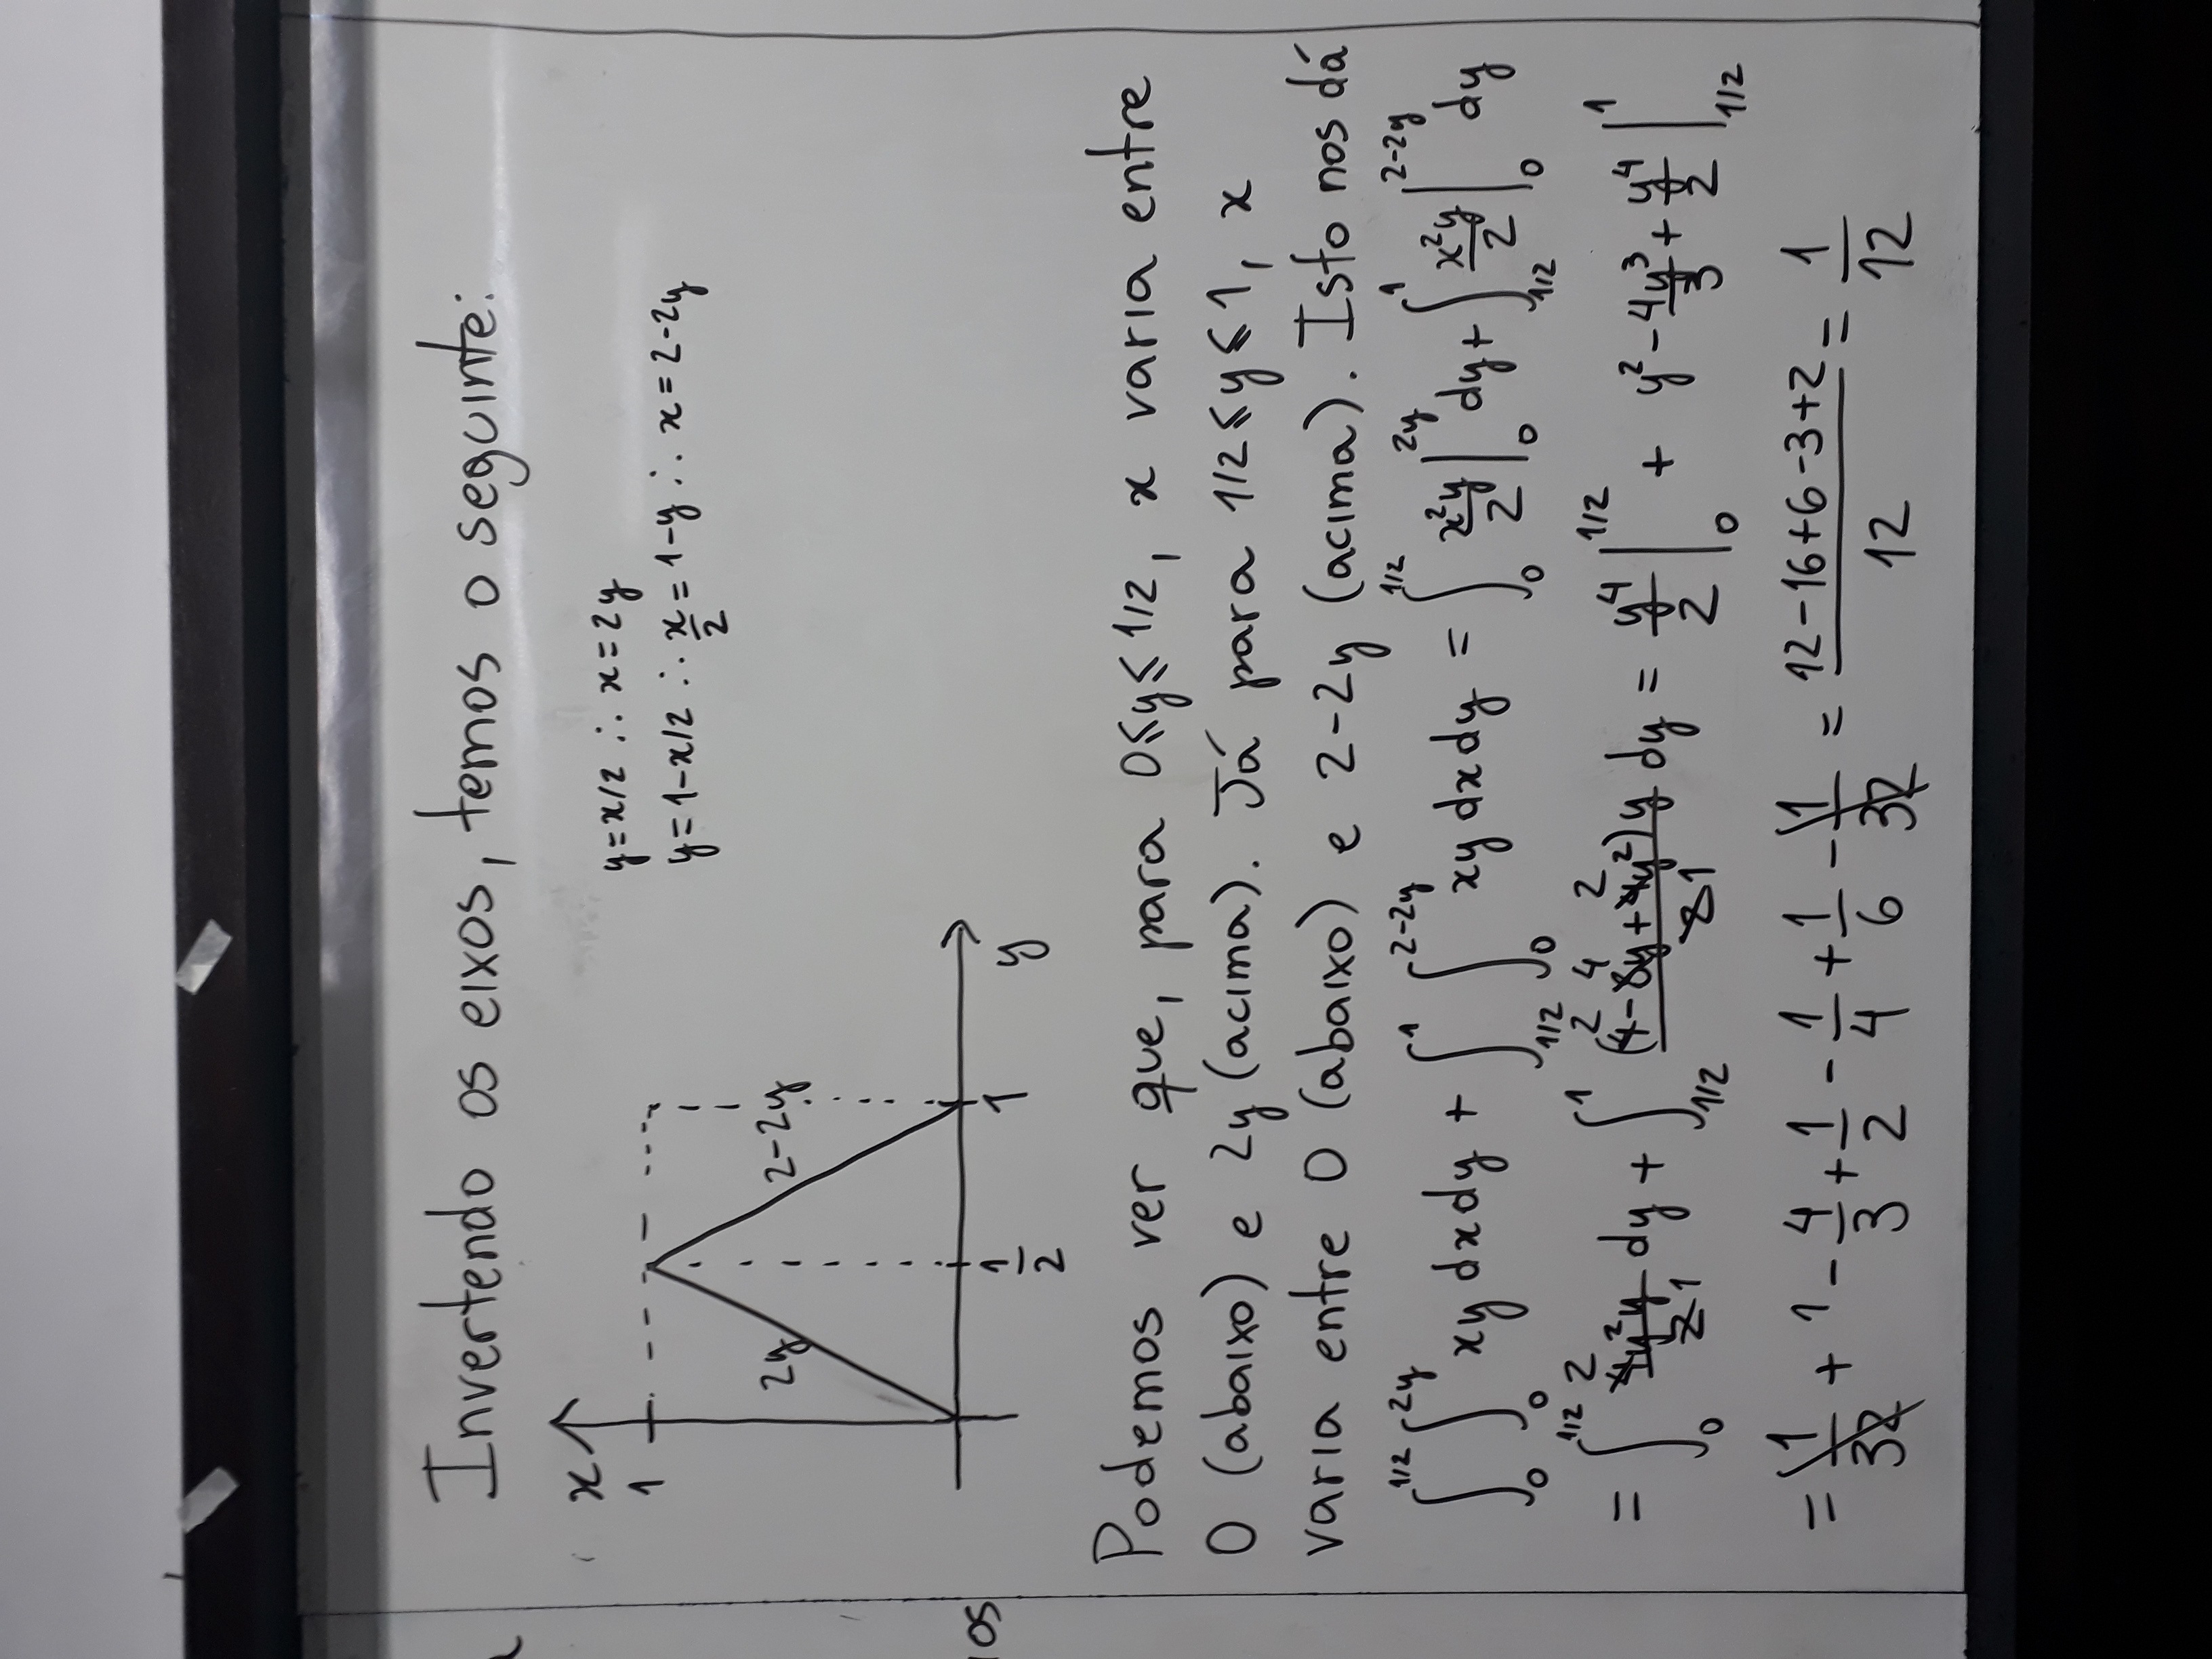 Invertendo os eixos, temos o seguinte:
x
1
y=x/2 ∴ x=2y
y=1-x/2 ∴ x/2 = 1-y ∴ x=2-2y
2y
2-2y
os
1/2
1
y
Podemos ver que, para 0≤y≤1/2, x varia entre
0 (abaixo) e 2y (acima). Já para 1/2≤y≤1, x
varia entre 0 (abaixo) e 2-2y (acima). Isto nos dá
∫_0^{1/2} ∫_0^{2y} xy dx dy + ∫_{1/2}^1 ∫_0^{2-2y} xy dx dy = ∫_0^{1/2} x²y/2 |_0^{2y} dy + ∫_{1/2}^1 x²y/2 |_0^{2-2y} dy
= ∫_0^{1/2} 2 4y²y/2 1 dy + ∫_{1/2}^1 2 4 2 (4-8y+4y²)y/2 1 dy = y⁴/2 |_0^{1/2} + y² - 4y³/3 + y⁴/2 |_{1/2}^1
= 1/32 + 1 - 4/3 + 1/2 - 1/4 + 1/6 - 1/32 = (12-16+6-3+2)/12 = 1/12